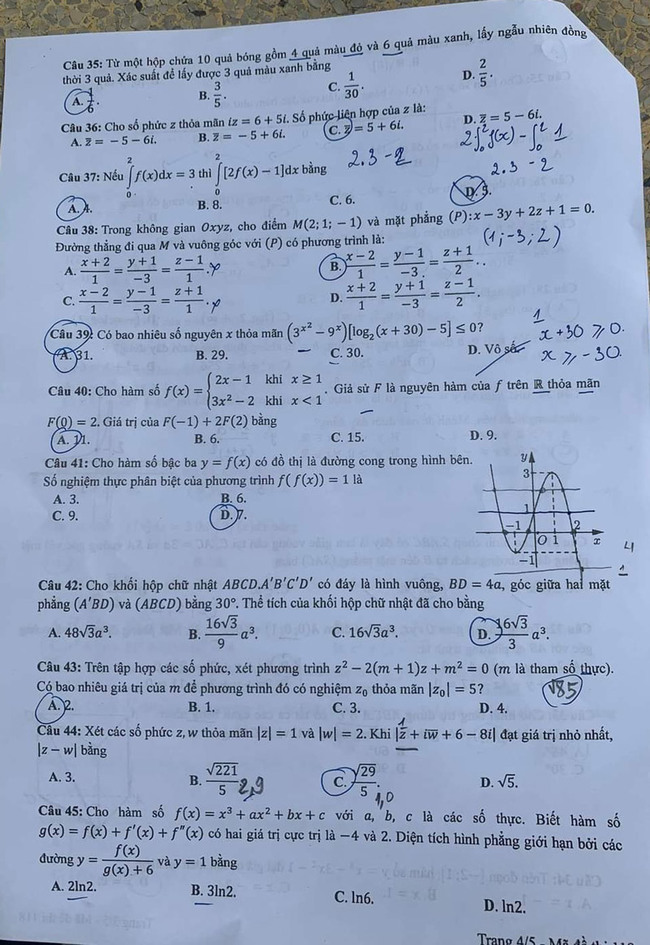 Câu 35: Từ một hộp chứa 10 quả bóng gồm 4 quả màu đỏ và 6 quả màu xanh, lấy ngẫu nhiên đồng
thời 3 quả. Xác suất để lấy được 3 quả màu xanh bằng
A. 1/6. B. 3/5. C. 1/30. D. 2/5.
Câu 36: Cho số phức z thỏa mãn iz = 6 + 5i. Số phức liên hợp của z là:
A. z̅ = − 5 − 6i. B. z̅ = − 5 + 6i. C. z̅ = 5 + 6i. D. z̅ = 5 − 6i.
2∫₀² f(x) − ∫₀² 1
Câu 37: Nếu ∫₀² f(x)dx = 3 thì ∫₀² [2f(x) − 1]dx bằng
2.3 − 2
2.3 − 2
A. 4. B. 8. C. 6. D. 5.
Câu 38: Trong không gian Oxyz, cho điểm M(2; 1; − 1) và mặt phẳng (P): x − 3y + 2z + 1 = 0.
Đường thẳng đi qua M và vuông góc với (P) có phương trình là:
(1; −3; 2)
A. (x + 2)/1 = (y + 1)/−3 = (z − 1)/1. B. (x − 2)/1 = (y − 1)/−3 = (z + 1)/2.
C. (x − 2)/1 = (y − 1)/−3 = (z + 1)/1. D. (x + 2)/1 = (y + 1)/−3 = (z − 1)/2.
Câu 39: Có bao nhiêu số nguyên x thỏa mãn (3^(x²) − 9^x)[log₂(x + 30) − 5] ≤ 0?
1
x + 30 ≥ 0.
A. 31. B. 29. C. 30. D. Vô số.
x ≥ − 30.
Câu 40: Cho hàm số f(x) = {2x − 1 khi x ≥ 1
3x² − 2 khi x < 1. Giả sử F là nguyên hàm của f trên ℝ thỏa mãn
F(0) = 2. Giá trị của F(−1) + 2F(2) bằng
A. 11. B. 6. C. 15. D. 9.
Câu 41: Cho hàm số bậc ba y = f(x) có đồ thị là đường cong trong hình bên.
Số nghiệm thực phân biệt của phương trình f( f(x)) = 1 là
A. 3. B. 6.
C. 9. D. 7.
y
3
1
−1 O 1 2 x
−1
Câu 42: Cho khối hộp chữ nhật ABCD.A'B'C'D' có đáy là hình vuông, BD = 4a, góc giữa hai mặt
phẳng (A'BD) và (ABCD) bằng 30°. Thể tích của khối hộp chữ nhật đã cho bằng
A. 48√3a³. B. 16√3/9 a³. C. 16√3a³. D. 16√3/3 a³.
Câu 43: Trên tập hợp các số phức, xét phương trình z² − 2(m + 1)z + m² = 0 (m là tham số thực).
Có bao nhiêu giá trị của m để phương trình đó có nghiệm z₀ thỏa mãn |z₀| = 5?
√85
A. 2. B. 1. C. 3. D. 4.
Câu 44: Xét các số phức z, w thỏa mãn |z| = 1 và |w| = 2. Khi |z̅ + iw̅ + 6 − 8i| đạt giá trị nhỏ nhất,
1
|z − w| bằng
A. 3. B. √221/5 C. √29/5. D. √5.
2,9
1,0
Câu 45: Cho hàm số f(x) = x³ + ax² + bx + c với a, b, c là các số thực. Biết hàm số
g(x) = f(x) + f'(x) + f''(x) có hai giá trị cực trị là −4 và 2. Diện tích hình phẳng giới hạn bởi các
đường y = f(x)/(g(x) + 6) và y = 1 bằng
A. 2ln2. B. 3ln2. C. ln6. D. ln2.
Trang 4/5 - Mã đề